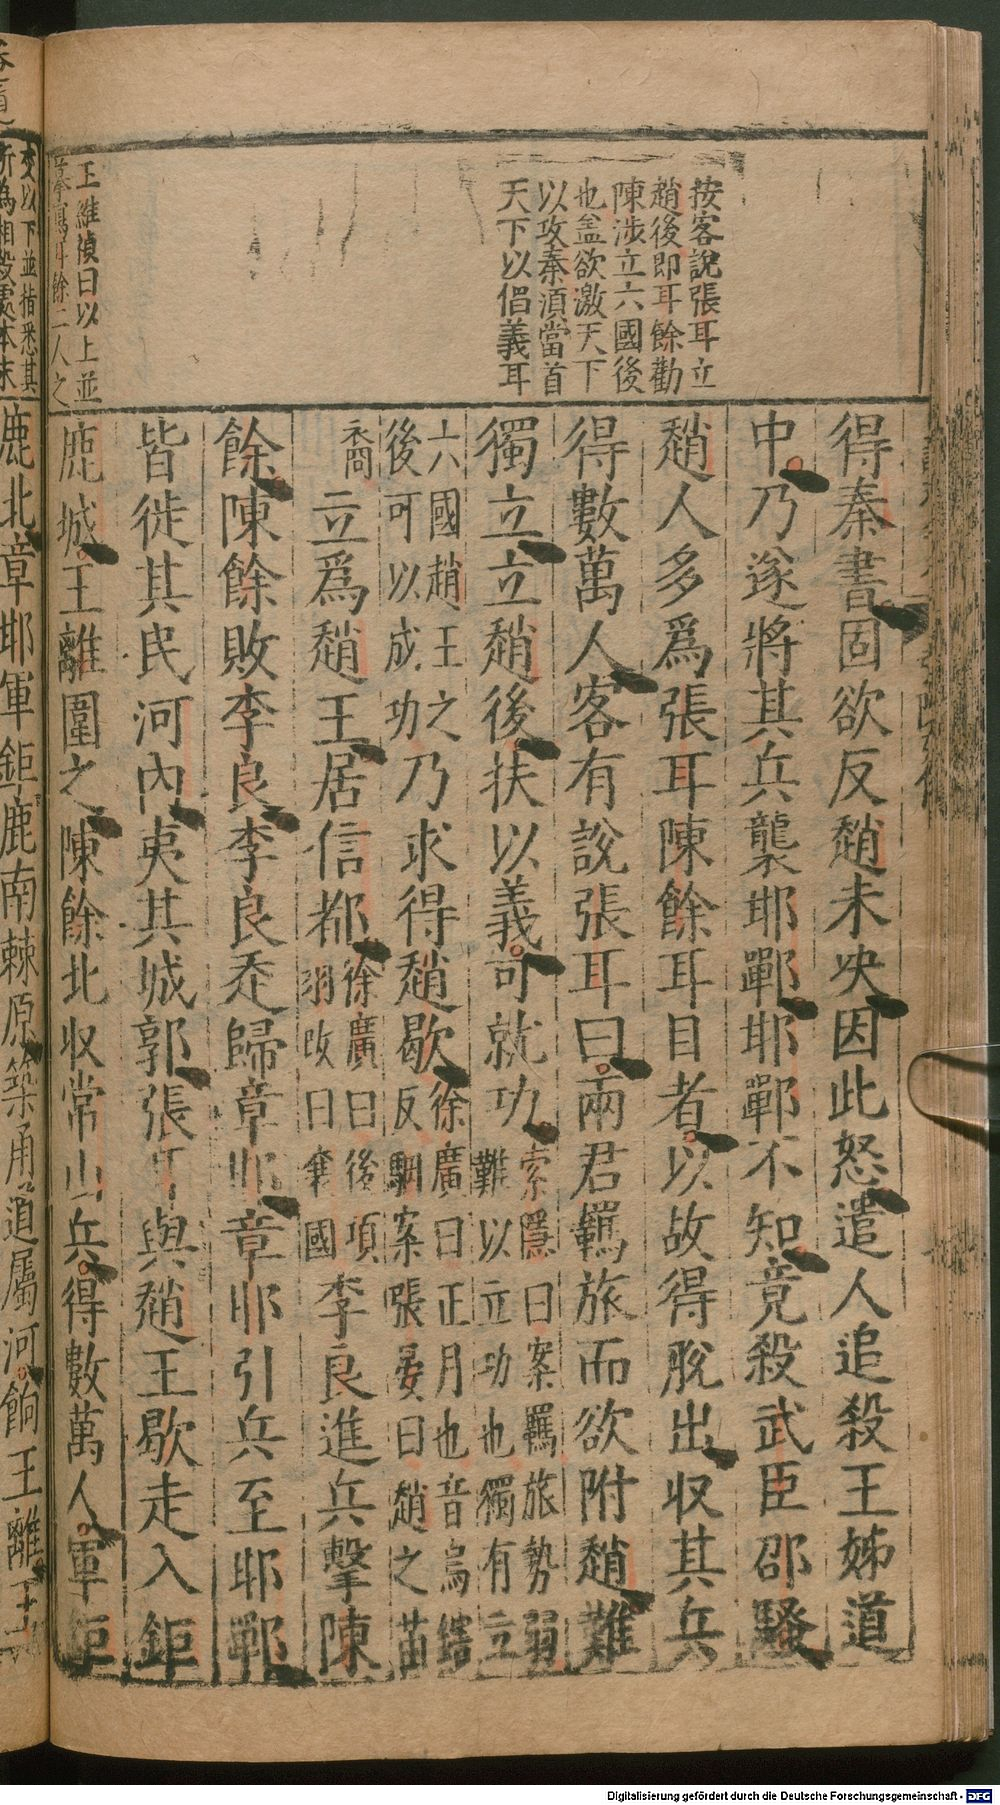 按客說張耳立
趙後即耳餘勸
陳涉立六國後
也盖欲激天下
以攻秦須當首
天下以倡義耳
王維禎曰以上並
餘二人之
得秦書固欲反趙未决因此怒遣人追殺王姊道
中乃遂將其兵襲邯鄲邯鄲不知竟殺武臣邵騷
趙人多爲張耳陳餘耳目者以故得脫出收其兵
得數萬人客有說張耳曰兩君羈旅而欲附趙難
獨立立趙後扶以義可就功
索隱曰案羈旅勢弱
難以立功也獨有立
六國趙王之
後可以成功
乃求得趙歇
徐廣曰正月也音烏轄
反駰案張晏曰趙之苗
裔
立爲趙王居信都
徐廣曰後項
羽改曰襄國
李良進兵擊陳
餘陳餘敗李良李良走歸章邯章邯引兵至邯鄲
皆徙其民河內夷其城郭張耳與趙王歇走入鉅
鹿城王離圍之陳餘北收常山兵得數萬人軍鉅
交以下並指悉其
所爲相殺處本末
鹿北章邯軍鉅鹿南棘原築甬道屬河餉王離王
Digitalisierung gefördert durch die Deutsche Forschungsgemeinschaft - DFG